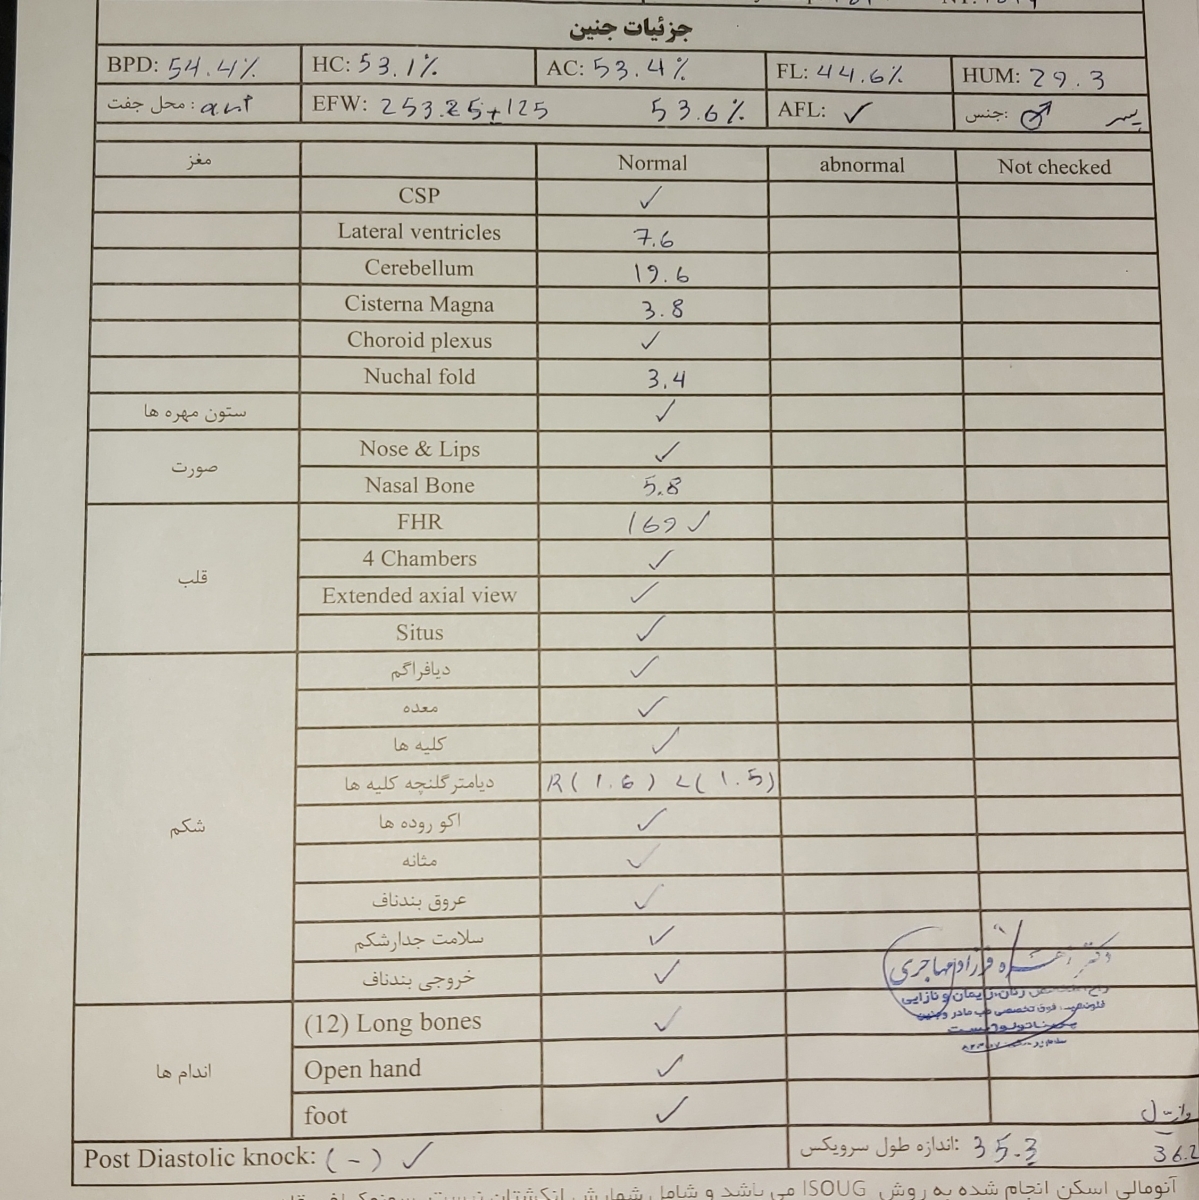 جزئیات جنین
BPD: 54.4% HC: 53.1% AC: 53.4% FL: 44.6% HUM: 29.3
محل جفت: ant EFW: 253.25±125 53.6% AFL: ✓ جنس: ♂ پسر
مغز Normal abnormal Not checked
CSP ✓
Lateral ventricles 7.6
Cerebellum 19.6
Cisterna Magna 3.8
Choroid plexus ✓
Nuchal fold 3.4
ستون مهره ها ✓
صورت
Nose & Lips ✓
Nasal Bone 5.8
قلب
FHR ✓
4 Chambers ✓
Extended axial view ✓
Situs ✓
شکم
دیافراگم ✓
معده ✓
کلیه ها ✓
دیامترگلنچه کلیه ها R(1.6) L(1.5)
اکو روده ها ✓
مثانه ✓
عروق بندناف ✓
سلامت جدارشکم ✓
خروجی بندناف ✓
اندام ها
(12) Long bones ✓
Open hand ✓
foot ✓
دکتر فرزاد مهاجری
زنان، زایمان و نازایی
فوق تخصصی طب مادر و جنین
Post Diastolic knock: (-) ✓ اندازه طول سرویکس: 35.3
36.2
آنومالی اسکن انجام شده به روش ISOUG می باشد و شامل شمارش انگشتان نیست.